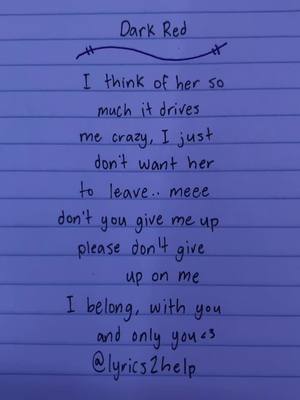 Dark Red
I think of her so
much it drives
me crazy, I just
don't want her
to leave.. meee
don't you give me up
please don't give
up on me
I belong, with you
and only you <3
@lyrics2help